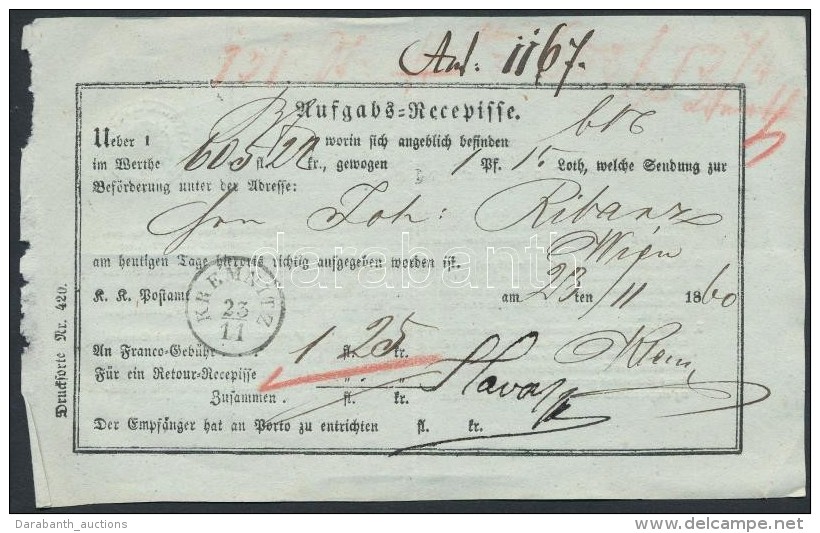 Auf: 1167.
Aufgabs=Recepisse.
Ueber 1 worin sich angeblich befinden
im Werthe 605 fl. 20 kr., gewogen 1 Pf. 15 Loth, welche Sendung zur
Beförderung unter der Adresse:
Joh: Ribanz
Wien
am heutigen Tage hierorts richtig aufgegeben worden ist.
K. K. Postamt am 23ten /11 1860
KREMNITZ
23
11
An Franco=Gebühr 1 fl. 25 kr.
Klein
Für ein Retour=Recepisse
Zusammen . fl. kr.
Der Empfänger hat an Porto zu entrichten fl. kr.
Drucksorte Nr. 420.
darabanth
Darabanth_auctions
delcampe.net